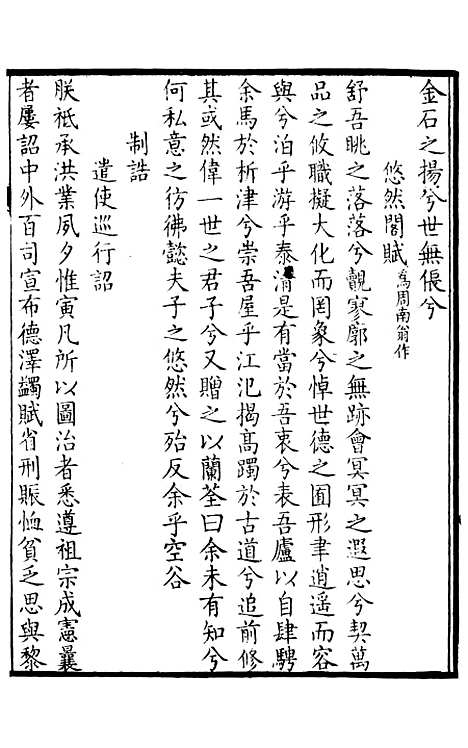 金石之揚兮世無倀兮
悠然閣賦為周南翁作
舒吾眺之落落兮覿寥廓之無跡會冥冥之遐思兮契萬
品之攸職擬大化而罔象兮悼世德之囿形聿逍遥而容
與兮泊乎游乎泰清是有當於吾衷兮表吾廬以自肆騁
余馬於析津兮崇吾屋乎江汜揭髙躅於古道兮追前修
其或然偉一世之君子兮又贈之以蘭荃曰余未有知兮
何私意之彷彿懿夫子之悠然兮殆反余乎空谷
制誥
遣使巡行詔
朕祗承洪業夙夕惟寅凡所以圖治者悉遵祖宗成憲曩
者屢詔中外百司宣布德澤蠲賦省刑賑恤貧乏思與黎